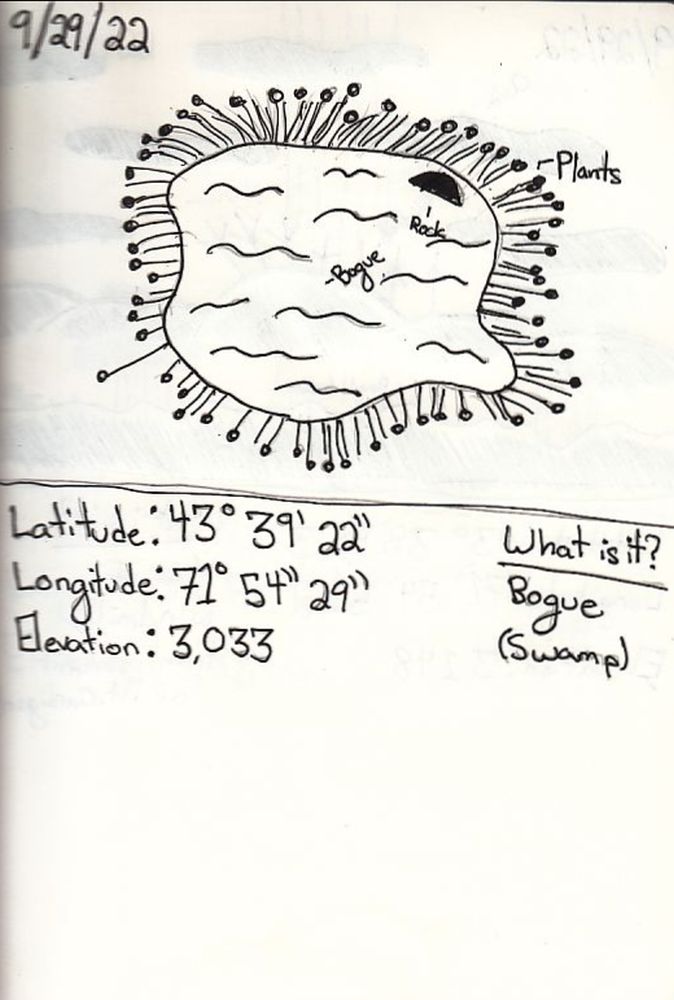 9/29/22
-Plants
Rock
-Bogue
Latitude: 43° 39' 22"
Longitude: 71° 54" 29"
Elevation: 3,033
What is it?
Bogue
(Swamp)